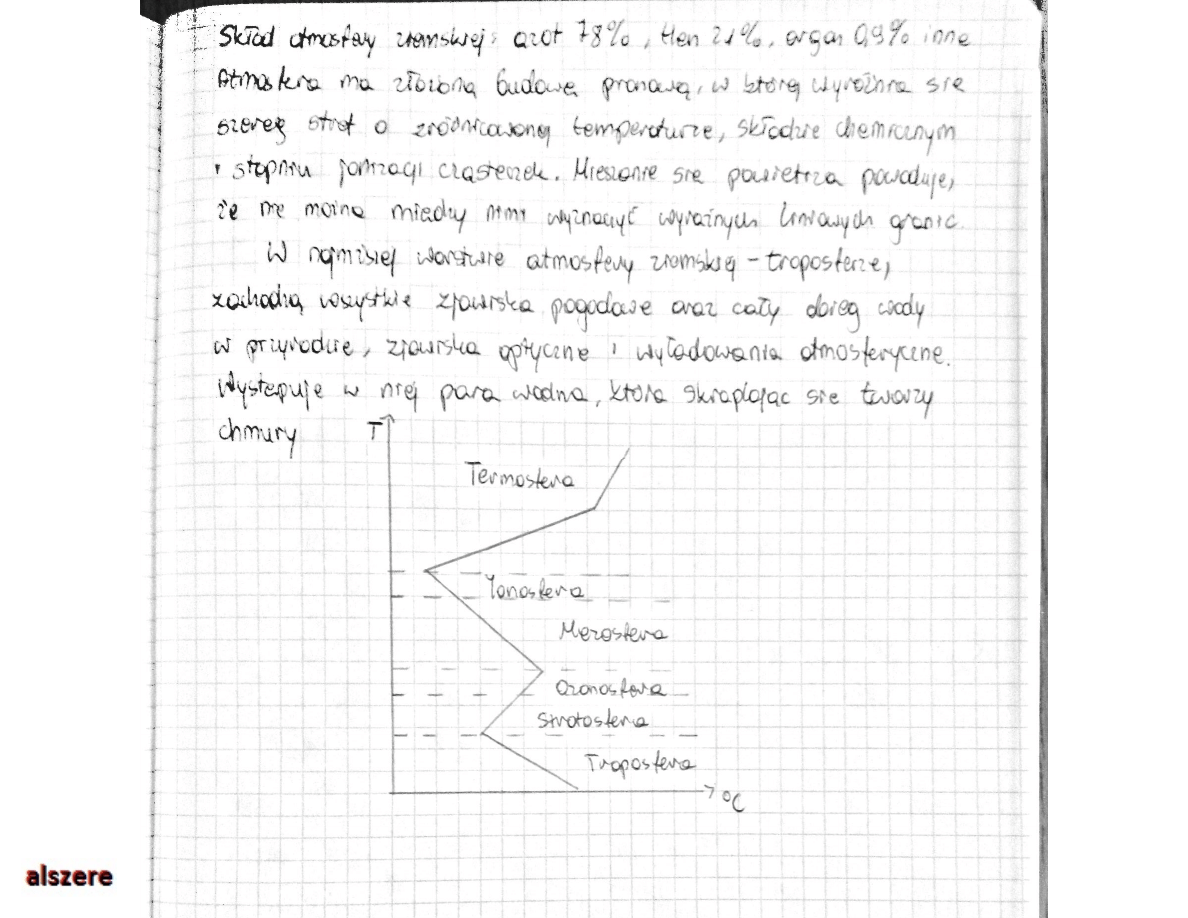 Skład atmosfery ziemskiej: azot 78%, tlen 21%, argon 0,9% inne
Atmosfera ma złożoną budowę pionową, w której wyróżnia się
szereg stref o zróżnicowanej temperaturze, składzie chemicznym
i stopniu jonizacji cząsteczek. Mieszanie się powietrza powoduje,
że nie można między nimi wyznaczyć wyraźnych liniowych granic.
W najniższej warstwie atmosfery ziemskiej - troposferze,
zachodzą wszystkie zjawiska pogodowe oraz cały obieg wody
w przyrodzie, zjawiska optyczne i wyładowania atmosferyczne.
Występuje w niej para wodna, która skraplając się tworzy
chmury
T
Termosfera
Jonosfera
Mezosfera
Ozonosfera
Stratosfera
Troposfera
°C
alszere